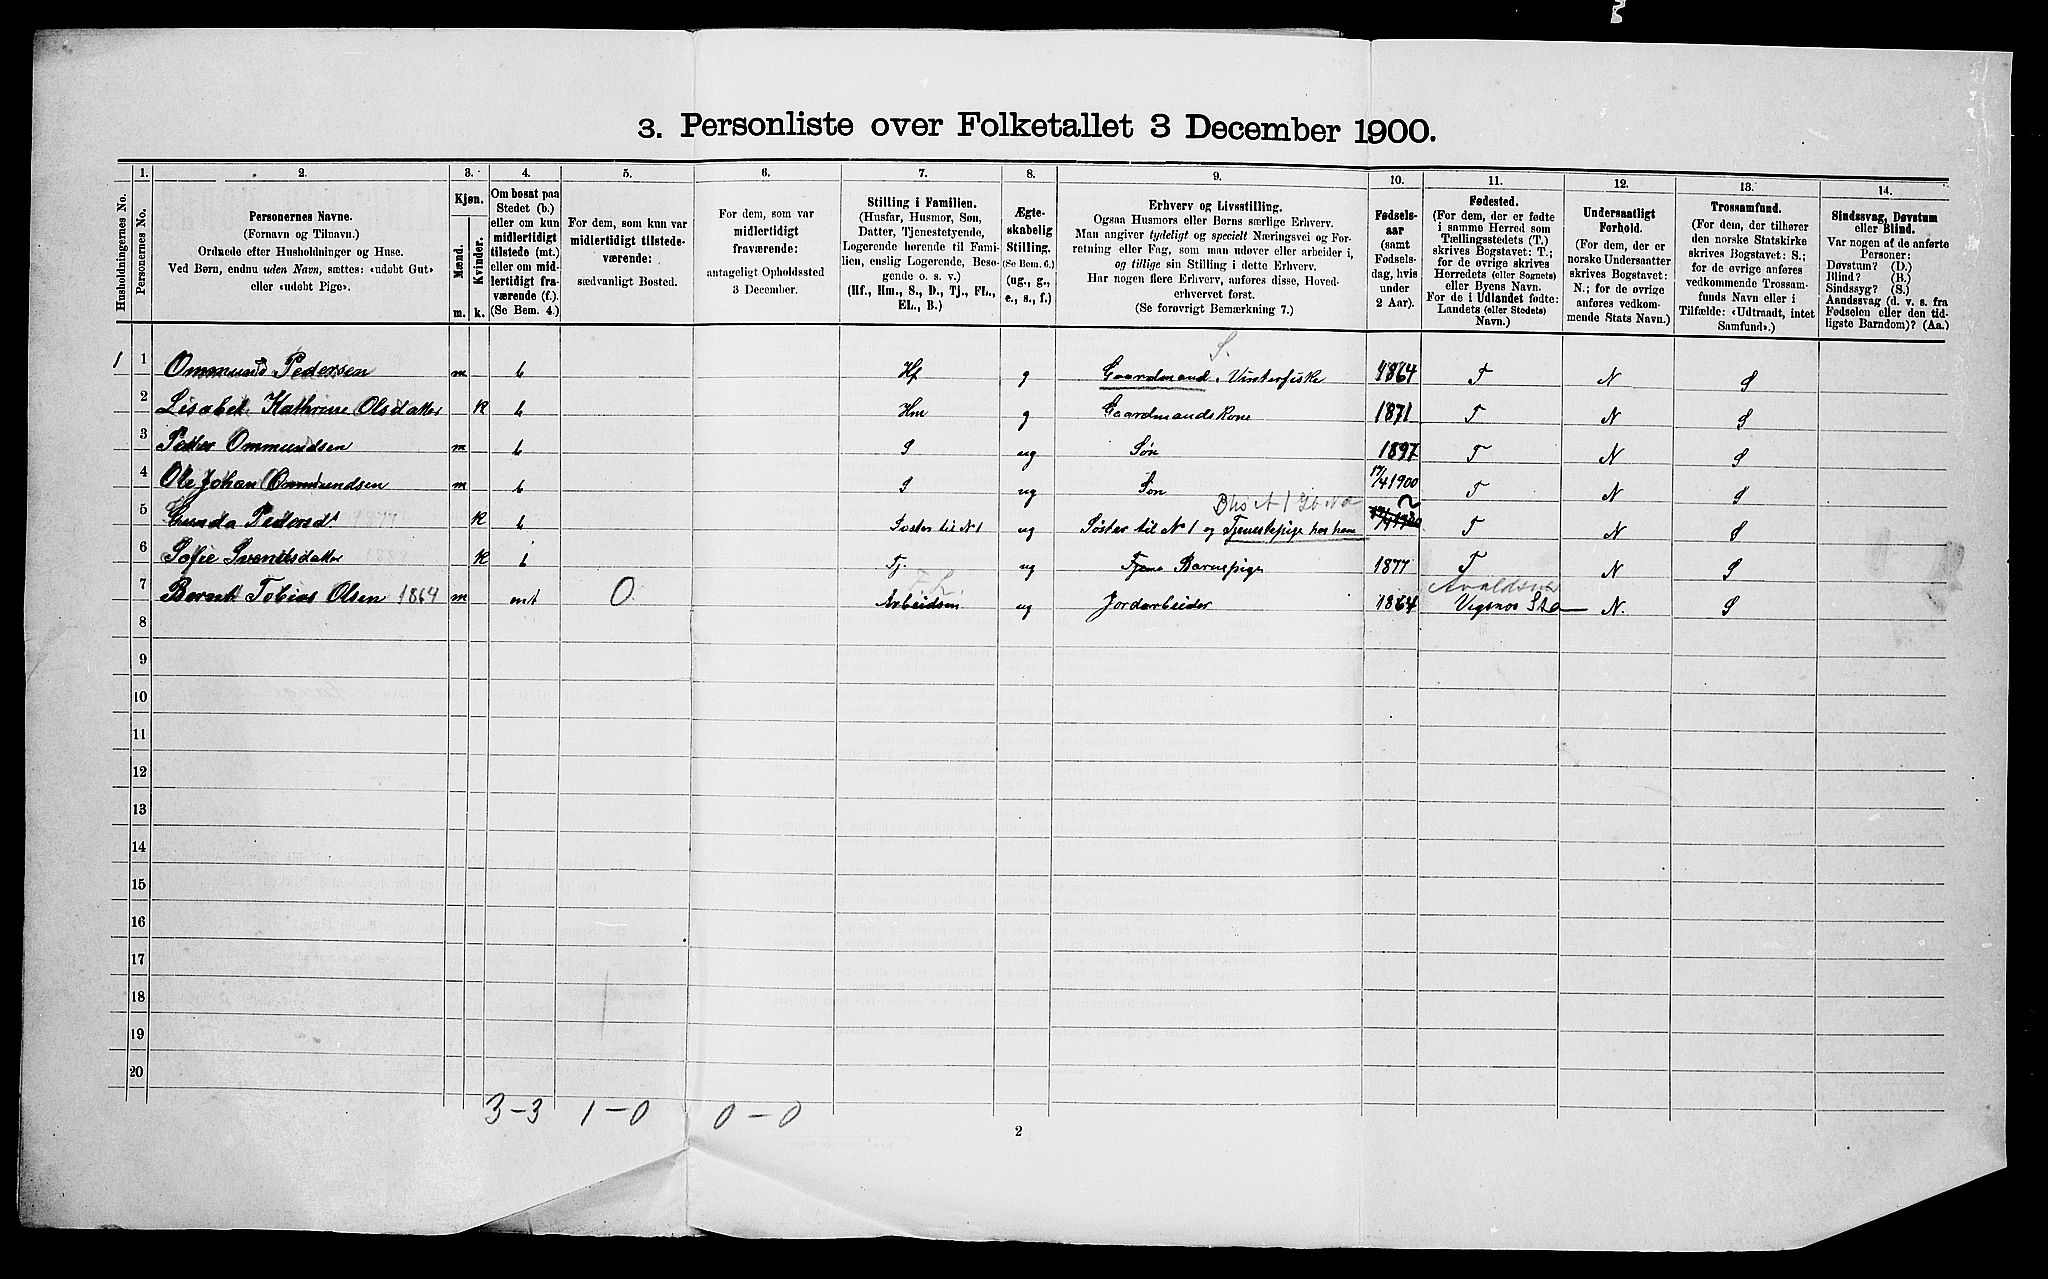 3. Personliste over Folketallet 3 December 1900.
Husholdningernes No.
1.
Personernes No.
2.
Personernes Navne.
(Fornavn og Tilnavn.)
Ordnede efter Husholdninger og Huse.
Ved Børn, endnu uden Navn, sættes: «udøbt Gut»
eller «udøbt Pige».
3.
Kjøn.
Mænd.
Kvinder.
m.
k.
4.
Om bosat paa
Stedet (b.)
eller om kun
midlertidigt
tilstede (mt.)
eller om mid-
lertidigt fra-
værende (f.).
(Se Bem. 4.)
5.
For dem, som kun var
midlertidigt tilstede-
værende:
sædvanligt Bosted.
6.
For dem, som var
midlertidigt
fraværende:
antageligt Opholdssted
3 December.
7.
Stilling i Familien.
(Husfar, Husmor, Søn,
Datter, Tjenestetyende,
Logerende hørende til Fami-
lien, enslig Logerende, Besø-
gende o. s. v.)
(Hf., Hm., S., D., Tj., FL.,
EL., B.)
8.
Ægte-
skabelig
Stilling.
(Se Bem. 6.)
(ug., g.,
e., s., f.)
9.
Erhverv og Livsstilling.
Ogsaa Husmors eller Børns særlige Erhverv.
Man angiver tydeligt og specielt Næringsvei og For-
retning eller Fag, som man udøver eller arbeider i,
og tillige sin Stilling i dette Erhverv.
Har nogen flere Erhverv, anføres disse, Hoved-
erhvervet først.
(Se forøvrigt Bemærkning 7.)
10.
Fødsels-
aar
(samt
Fødsels-
dag, hvis
under
2 Aar).
11.
Fødested.
(For dem, der er fødte
i samme Herred som
Tællingsstedets (T.)
skrives Bogstavet: T.;
for de øvrige skrives
Herredets (eller Sognets)
eller Byens Navn.
For de i Udlandet fødte:
Landets (eller Stedets)
Navn.)
12.
Undersaatligt
Forhold.
(For dem, der er
norske Undersaatter
skrives Bogstavet:
N.; for de øvrige
anføres vedkom-
mende Stats Navn.)
13.
Trossamfund.
(For dem, der tilhører
den norske Statskirke
skrives Bogstavet: S.;
for de øvrige anføres
vedkommende Trossam-
funds Navn eller i
Tilfælde: «Udtraadt, intet
Samfund».)
14.
Sindssvag, Døvstum
eller Blind.
Var nogen af de anførte
Personer:
Døvstum? (D.)
Blind? (B.)
Sindssyg? (S.)
Aandssvag (d. v. s. fra
Fødselen eller den tid-
ligste Barndom)? (Aa.)
S.
1 1 Ommund Pedersen m b Hf g Gaardmand, Vinterfiske 1864 T N S
2 Lisabet Kathrine Olsdatter k b Hm g Gaardmandskone 1871 T N S
3 Peder Ommundsen m b S ug Søn 1897 T N S
4 Ole Johan Ommundsen m b S ug Søn 17/4 1900 T N S
5 Gunda Pedersdt 1877 k b Søster til N 1 ug Søster til N 1 og Tjenestepige hos ham T N S
6 Sofie Svendsdatter k b Tj. ug Barnepige 1877 T N S
F. L. Avaldsnes
7 Bernt Tobias Olsen 1864 m mt 0 Arbeidsm ug Jordarbeider 1864 Vigsnes N. S
8
9
10
11
12
13
14
15
16
17
18
19
20
3-3 1-0 0-0
2